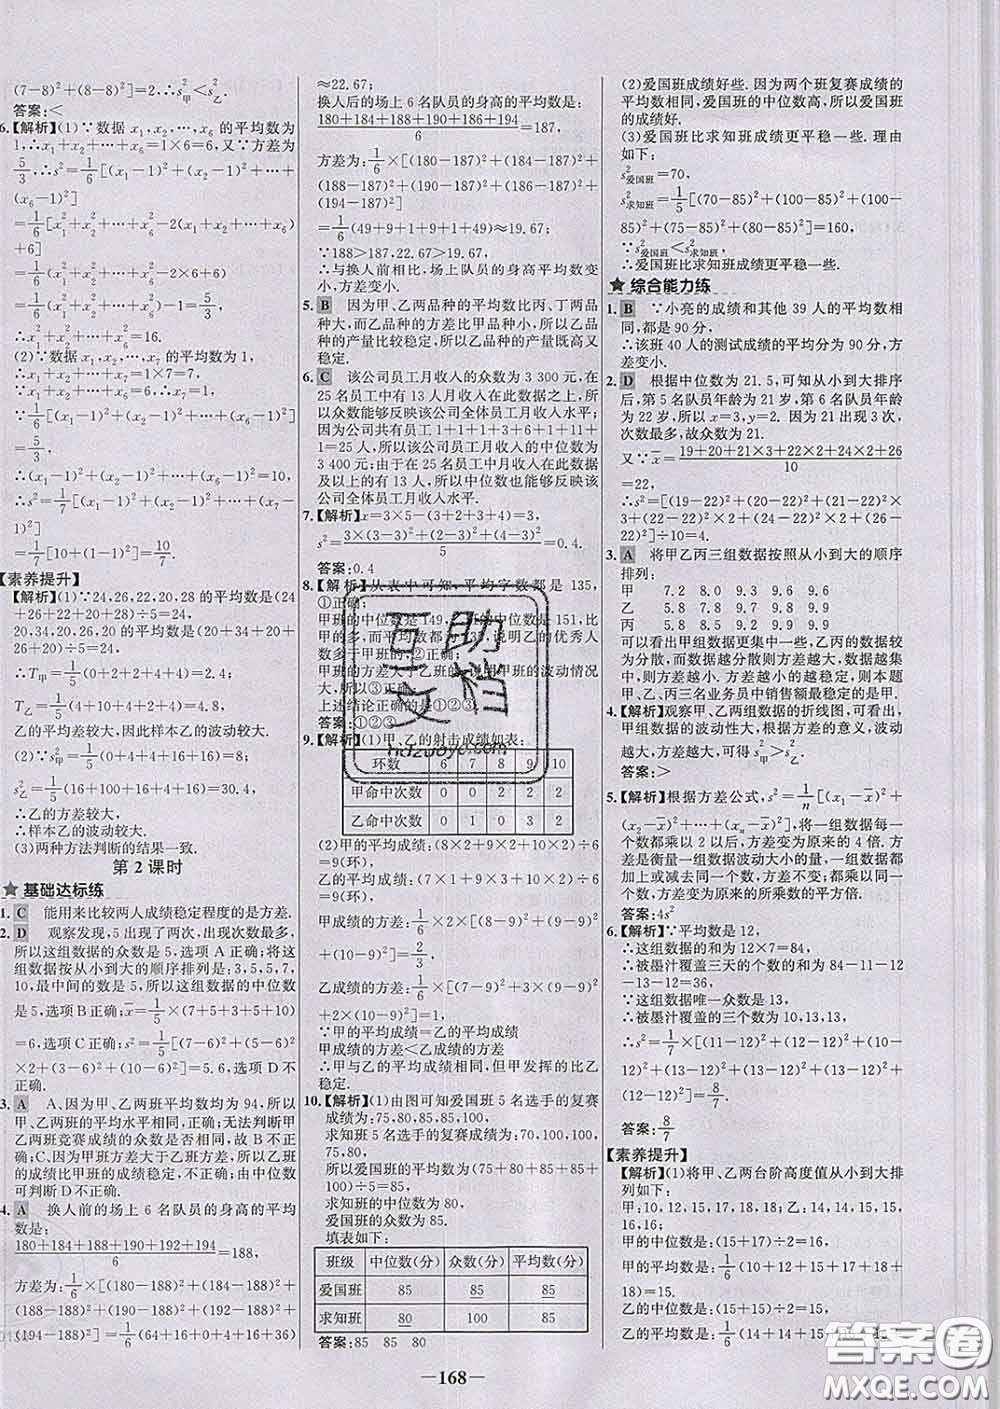 (7-8)²+(8-8)²]=2.∴s²甲<s²乙.
答案:<
6.【解析】(1)∵数据 x₁,x₂,…,x₆ 的平均数为
1,∴x₁+x₂+…+x₆=1×6=6,又∵方差为
5/3,∴s²=1/6[(x₁-1)²+(x₂-1)²+…+
(x₆-1)²]
=1/6[x₁²+x₂²+…+x₆²-2(x₁+x₂+…+x₆)
+6]
=1/6(x₁²+x₂²+…+x₆²-2×6+6)
=1/6(x₁²+x₂²+…+x₆²)-1=5/3,
∴x₁²+x₂²+…+x₆²=16.
(2)∵数据 x₁,x₂,…,x₇ 的平均数为 1,
∴x₁+x₂+…+x₇=1×7=7,
∵x₁+x₂+…+x₆=6,∴x₇=1,
∵1/6[(x₁-1)²+(x₂-1)²+…+(x₆-1)²]=
5/3,
∴(x₁-1)²+(x₂-1)²+…+(x₆-1)²=10,
∴s²=1/7[(x₁-1)²+(x₂-1)²+…+(x₇-1)²]
=1/7[10+(1-1)²]=10/7.
【素养提升】
【解析】(1)∵24,26,22,20,28 的平均数是(24
+26+22+20+28)÷5=24;
20,34,20,26,20 的平均数是(20+34+20+
26+20)÷5=24.
∴T甲=1/5(0+2+2+4+4)=2.4,
T乙=1/5(4+10+4+2+4)=4.8,
乙的平均差较大,因此样本乙的波动较大.
(2)∵s²甲=1/5(0+4+4+16+16)=8,
s²乙=1/5(16+100+16+4+16)=30.4,
∴乙的方差较大,
∴样本乙的波动较大.
(3)两种方法判断的结果一致.
第 2 课时
★ 基础达标练
1. C 能用来比较两人成绩稳定程度的是方差.
2. D 观察发现,5 出现了两次,出现次数最多,
所以这组数据的众数是 5,选项 A 正确;将这
组数据按从小到大的顺序排列是:3,5,5,7,
10,最中间的数是 5,所以这组数据的中位数
是 5,选项 B正确;x̄=1/5×(7+5+3+5+10)
=6,选项 C 正确;s²=1/5×[(7-6)²+(5-6)²
×2+(3-6)²+(10-6)²]=5.6,选项 D不
正确.
3. A A.因为甲、乙两班平均数均为 94,所以
甲、乙两班的平均水平相同,正确;无法判断甲
乙两班竞赛成绩的众数是否相同,所以 B不正
确;C.因为甲班方差大于乙班方差,所以甲班的
成绩比甲班的成绩稳定,不正确;由中位数
可判断 D不正确.
4. A 换人前的场上 6 名队员的身高的平均
数是:
(180+184+188+190+192+194)/6=188,
方差为:1/6×[(180-188)²+(184-188)²+
(188-188)²+(190-188)²+(192-188)²+
(194-188)²]=1/6(64+16+0+4+16+36)
≈22.67;
换人后的场上 6 名队员的身高的平均数是:
(180+184+188+190+186+194)/6=187,
方差为:1/6×[(180-187)²+(184-187)²+
(188-187)²+(190-187)²+(186-187)²+
(194-187)²]
=1/6(49+9+1+9+1+49)≈19.67;
∵188>187,22.67>19.67,
∴与换人前相比,场上队员的身高平均数变
小,方差变小.
5. B 因为甲、乙两品种的平均数比丙、丁两品
种大,而乙品种的方差比甲品种小,所以乙品
种的产量比较稳定,所以乙品种的产量既高又
稳定.
6. C 该公司员工月收入的众数为 3 300 元,在
25 名员工中有 13 人月收入在此数据之上,所
以众数能够反映该公司全体员工月收入水平;
因为公司共有员工 1+1+1+3+6+1+11+
1=25 人,所以该公司员工月收入的中位数为
3 400 元;由于在 25 名员工中月收入在此数据
及以上的有 13 人,所以中位数也能够反映该
公司全体员工月收入水平.
7.【解析】x=3×5-(3+2+3+4)=3,
s²=(3×(3-3)²+(2-3)²+(4-3)²)/5=0.4.
答案:0.4
8.【解析】从表中可知,平均字数都是 135,
①正确;
甲班的中位数是 149,乙班的中位数是 151,比
甲的多,而平均数都为 135,说明乙的优秀人
数多于甲班的,②正确;
甲班的方差大于乙班的,说明甲班的波动情况
大,所以③正确.
上述结论正确的是①②③.
答案:①②③
9.【解析】(1)甲、乙的射击成绩如表:
环数 6 7 8 9 10
甲命中次数 0 0 2 2 2
乙命中次数 0 1 0 3 2
(2)甲的平均成绩:(8×2+9×2+10×2)÷6
=9(环),
乙的平均成绩:(7×1+9×3+10×2)÷6
=9(环),
甲成绩的方差:1/6×[2×(8-9)²+(9-9)²×
2+2×(10-9)²]=2/3,
乙成绩的方差:1/6×[(7-9)²+3×(9-9)²
+2×(10-9)²]=1.
∵甲的平均成绩=乙的平均成绩
甲成绩的方差<乙成绩的方差
∴甲与乙的平均成绩相同,但甲发挥的比乙
稳定.
10.【解析】(1)由图可知爱国班 5 名选手的复赛
成绩为:75,80,85,85,100,
求知班 5 名选手的复赛成绩为:70,100,100,
75,80,
所以爱国班的平均数为(75+80+85+85+
100)÷5=85,
求知班的中位数为 80,
爱国班的众数为 85.
填表如下:
班级 中位数(分) 众数(分) 平均数(分)
爱国班 85 85 85
求知班 80 100 85
答案:85 85 80
(2)爱国班成绩好些.因为两个班复赛成绩的
平均数相同,爱国班的中位数高,所以爱国班
的成绩好.
(3)爱国班比求知班成绩更平稳一些.理由
如下:
s²爱国班=70,
s²求知班=1/5[(70-85)²+(100-85)²+(100-
85)²+(75-85)²+(80-85)²]=160,
∵s²爱国班<s²求知班,
∴爱国班比求知班成绩更平稳一些.
★ 综合能力练
1. B ∵小亮的成绩和其他 39 人的平均数相
同,都是 90 分,
∴该班 40 人的测试成绩的平均分为 90 分,方
差变小.
2. D 根据中位数为 21.5,可知从小到大排序
后,第 5 名队员年龄为 21 岁,第 6 名队员年龄
为 22 岁,所以 x=3,y=2.因为 21 出现 3 次,
次数最多,故众数为 21.
又∵x̄=(19+20+21×3+22×2+24×2+26)/10
=22,
∴s²=1/10[(19-22)²+(20-22)²+(21-22)²×
3+(22-22)²×2+(24-22)²×2+(26-
22)²]=4.
3. A 将甲乙丙三组数据按照从小到大的顺序
排列:
甲 7.2 8.0 9.3 9.6 9.6
乙 5.8 9.7 9.8 9.9 9.8
丙 5.8 7.8 9.9 9.9 9.9
可以看出甲组数据更集中一些,乙丙的数据较
为分散,数据越分散则方差越大,数据越集中
则方差越小.方差越小的越稳定,则本题
甲、乙、丙三名业务员中销售额最稳定的是甲.
4.【解析】观察甲、乙两组数据的折线图,可看出,
甲组数据的波动性大,根据方差的意义,波动
越大,方差越大,可得 s²甲>s²乙.
答案:>
5.【解析】根据方差公式,s²=1/n[(x₁-x̄)²+
(x₂-x̄)²+…+(xₙ-x̄)²],所有数据乘以 2 后,
平均数变为原来的 2 倍,方差变为原来的 4 倍.
方差是衡量一组数据波动大小的量,一组数据的
方差变为原来的所乘数的平方倍.
答案:4s²
6.【解析】∵平均数是 12,
∴这组数据的和为 12×7=84,
∴被墨汁覆盖三天的个数的和为 84-11-12
-13-12=36,
∵这组数据唯一众数是 13,
∴被墨汁覆盖的三个数为 10,13,13,
∴s²=1/7×[(11-12)²+(12-12)²+(10-
12)²+(13-12)²+(13-12)²+(13-12)²+
(12-12)²]=8/7.
答案:8/7
【素养提升】
【解析】(1)将甲、乙两台阶高度值从小到大排
列如下:
甲:10,12,15,17,18,18;乙:14,14,15,15,
16,16;
甲的中位数是:(15+17)÷2=16,
甲的平均数是:1/6(10+12+15+17+18+
18)=15.
乙的中位数是:(15+15)÷2=15,
乙的平均数是:1/6(14+14+15+
—168—
互助文档
hdzwoyo.com
答案圈
MXQE.COM